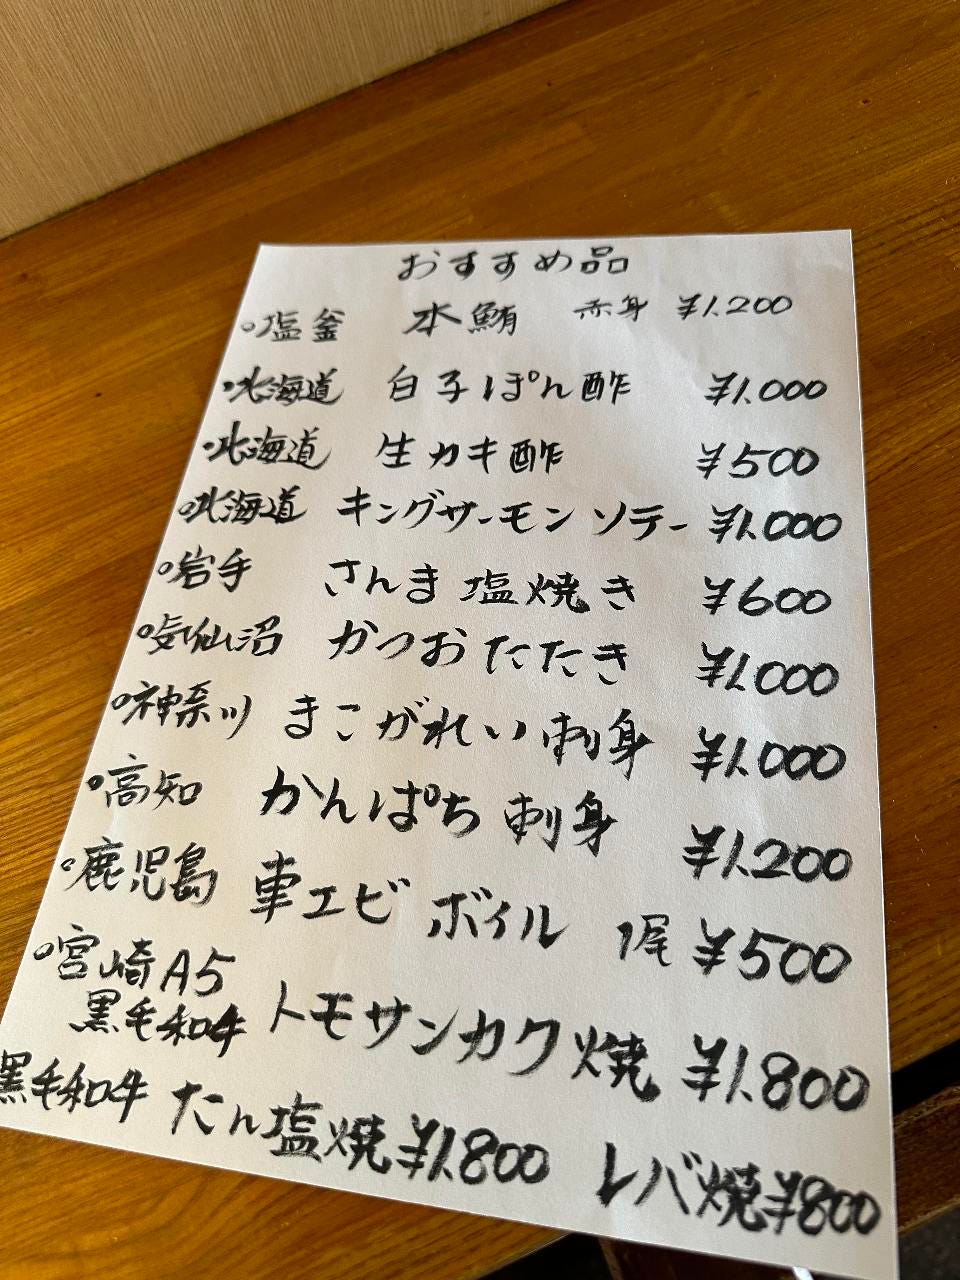 おすすめ品
○塩釜 本鮪 赤身 ¥1.200
○北海道 白子ぽん酢 ¥1.000
○北海道 生カキ酢 ¥500
○北海道 キングサーモンソテー ¥1.000
○岩手 さんま塩焼き ¥600
○気仙沼 かつおたたき ¥1.000
○神奈川 まこがれい刺身 ¥1.000
○高知 かんぱち刺身 ¥1.200
○鹿児島 車エビボイル 1尾 ¥500
○宮崎A5
黒毛和牛 トモサンカク焼 ¥1.800
黒毛和牛 たん塩焼 ¥1.800 レバ焼 ¥800